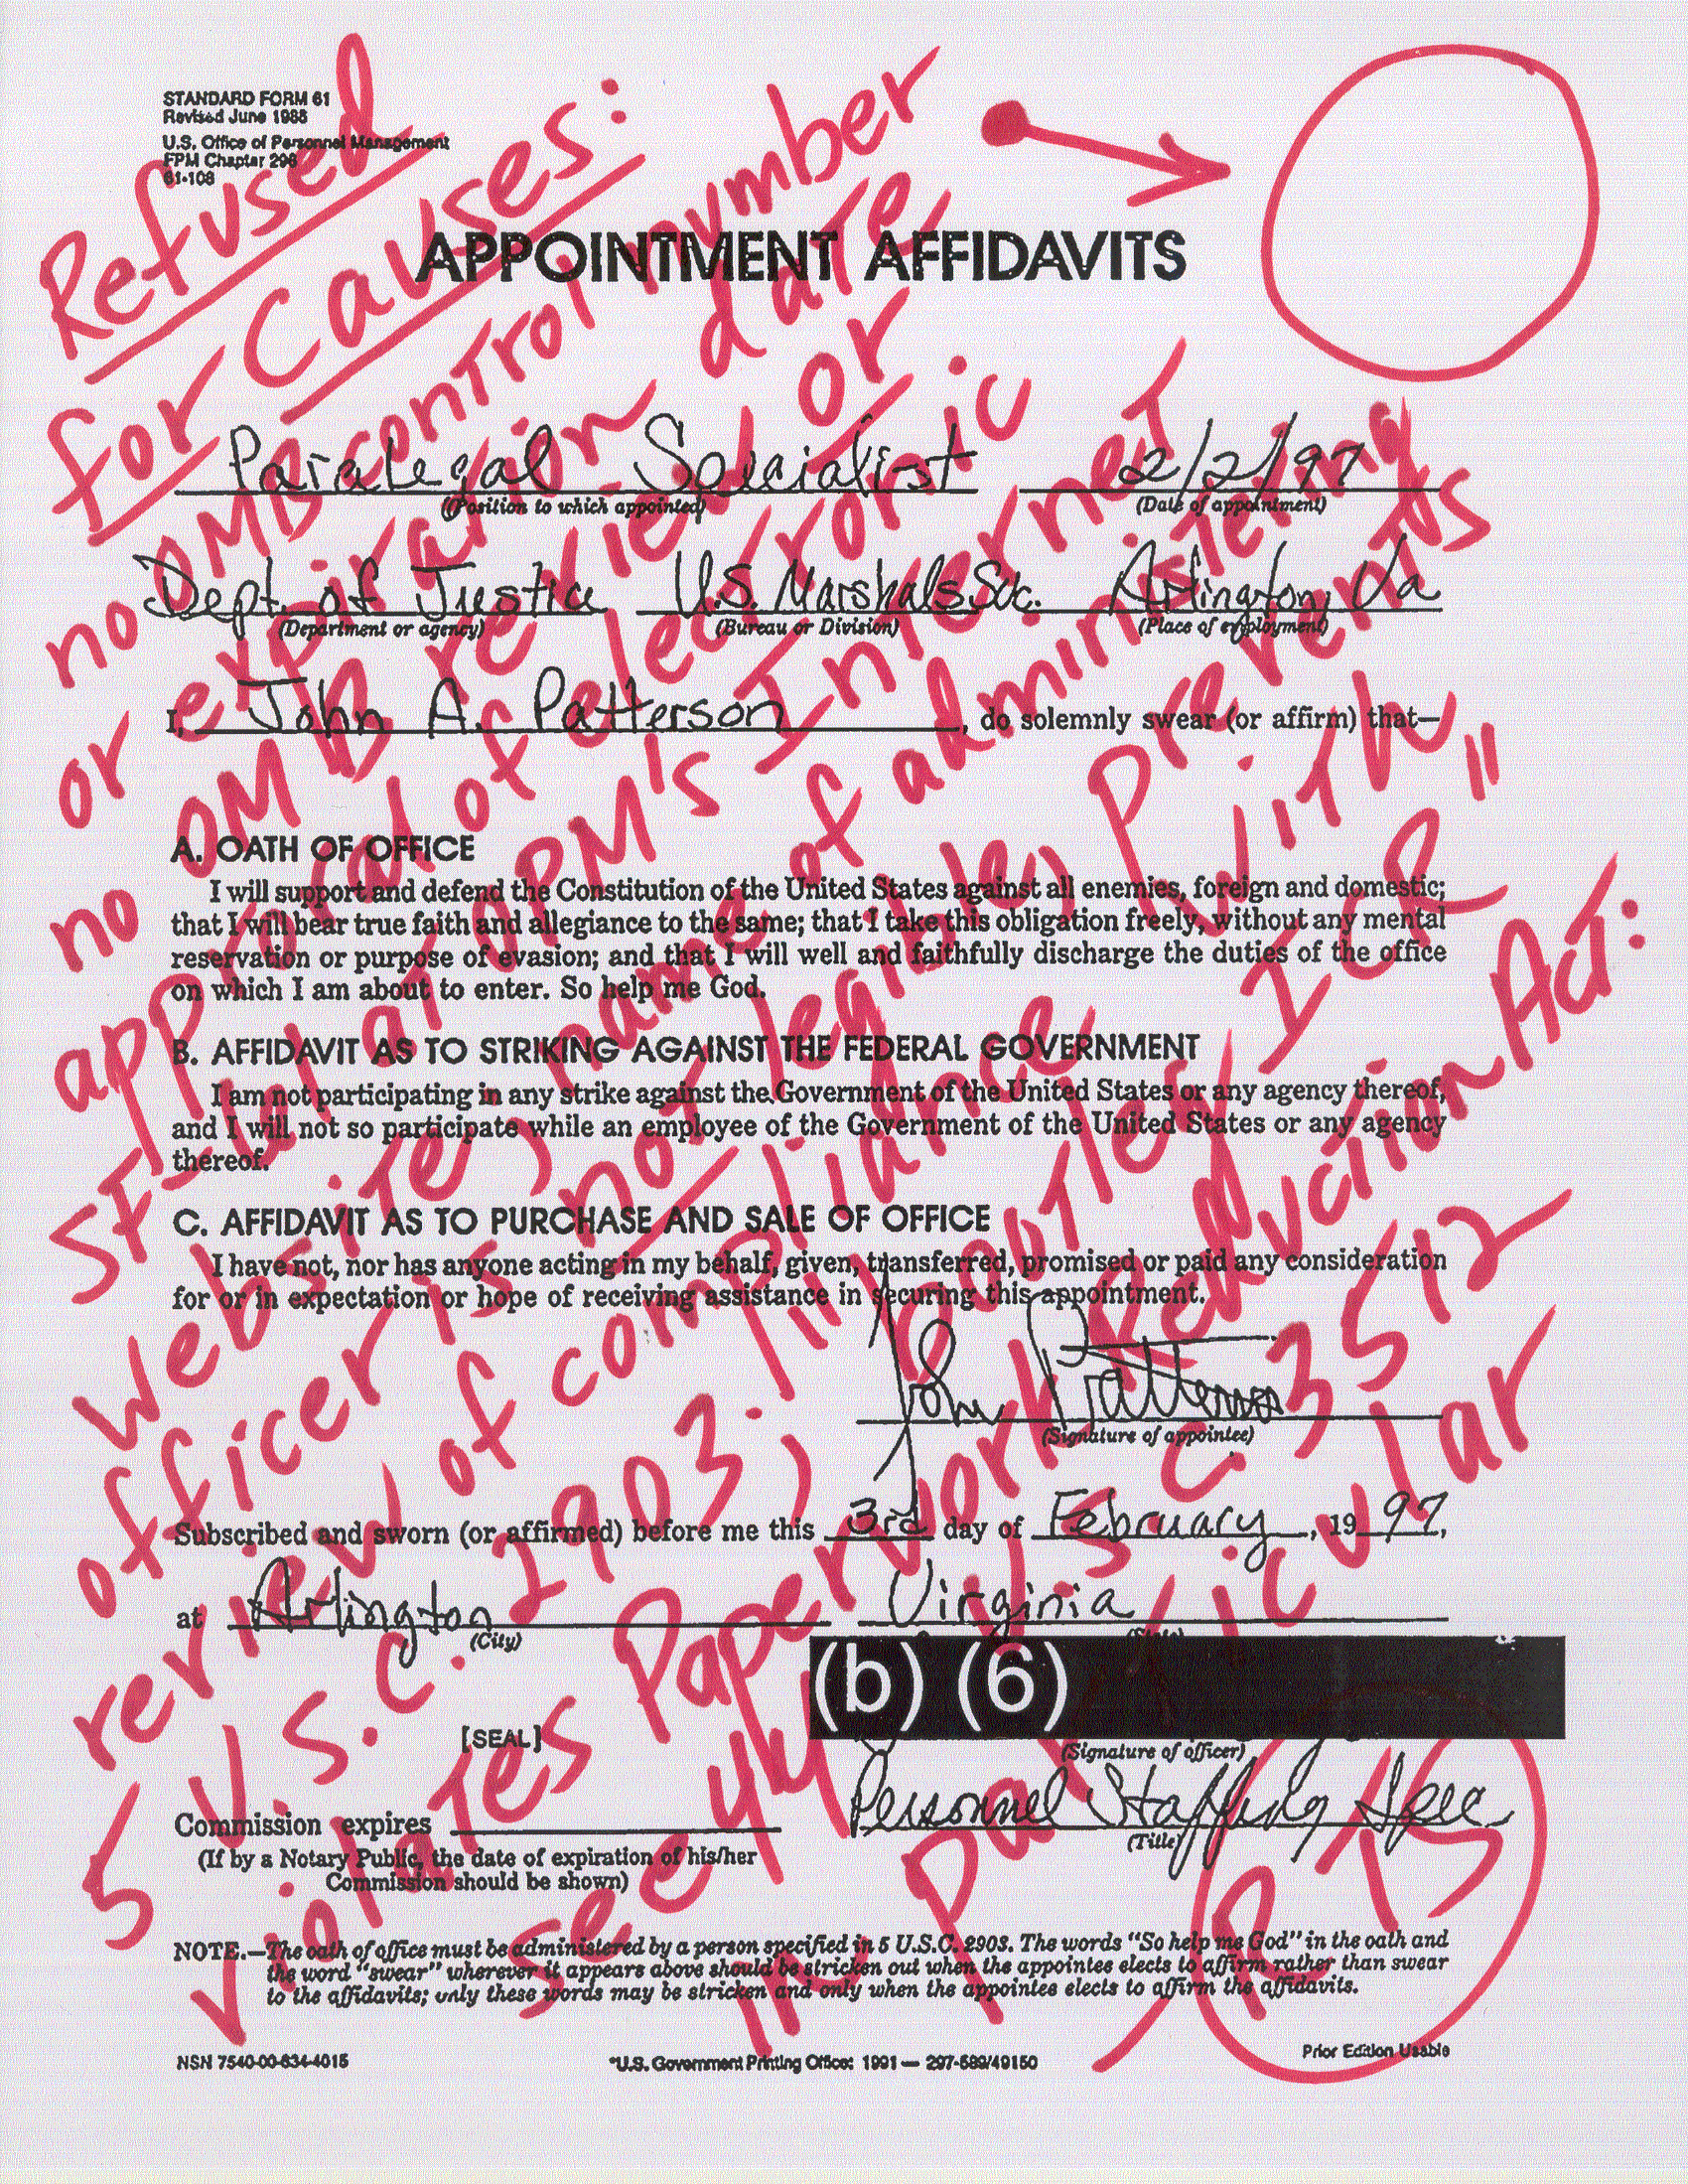 STANDARD FORM 61
Revised June 1986
U.S. Office of Personnel Management
FPM Chapter 296
61-108
APPOINTMENT AFFIDAVITS
ParaLegal Specialist 2/2/97
(Position to which appointed) (Date of appointment)
Dept. of Justice U.S. Marshals Svc. Arlington, Va
(Department or agency) (Bureau or Division) (Place of employment)
I, John A. Patterson, do solemnly swear (or affirm) that—
A. OATH OF OFFICE
I will support and defend the Constitution of the United States against all enemies, foreign and domestic;
that I will bear true faith and allegiance to the same; that I take this obligation freely, without any mental
reservation or purpose of evasion; and that I will well and faithfully discharge the duties of the office
on which I am about to enter. So help me God.
B. AFFIDAVIT AS TO STRIKING AGAINST THE FEDERAL GOVERNMENT
I am not participating in any strike against the Government of the United States or any agency thereof,
and I will not so participate while an employee of the Government of the United States or any agency
thereof.
C. AFFIDAVIT AS TO PURCHASE AND SALE OF OFFICE
I have not, nor has anyone acting in my behalf, given, transferred, promised or paid any consideration
for or in expectation or hope of receiving assistance in securing this appointment.
John Patterson
(Signature of appointee)
Subscribed and sworn (or affirmed) before me this 3rd day of February, 19 97,
at Arlington Virginia
(City) (State)
(b) (6)
[SEAL]
(Signature of officer)
Personnel Staffing Spec.
Commission expires
(Title)
(If by a Notary Public, the date of expiration of his/her
Commission should be shown)
NOTE.—The oath of office must be administered by a person specified in 5 U.S.C. 2903. The words "So help me God" in the oath and
the word "swear" wherever it appears above should be stricken out when the appointee elects to affirm rather than swear
to the affidavits; only these words may be stricken and only when the appointee elects to affirm the affidavits.
NSN 7540-00-634-4015 *U.S. Government Printing Office: 1991 — 297-589/49150 Prior Edition Usable
Refused
for Causes:
no OMB control number
or expiration date
no OMB review or
approval of electronic
SF-61 at OPM's Internet
website; name of administering
officer is not legible, prevents
review of compliance with
5 U.S.C. 2903; "bootleg ICR"
violates Paperwork Reduction Act:
see 44 U.S.C. 3512
in particular
RTS